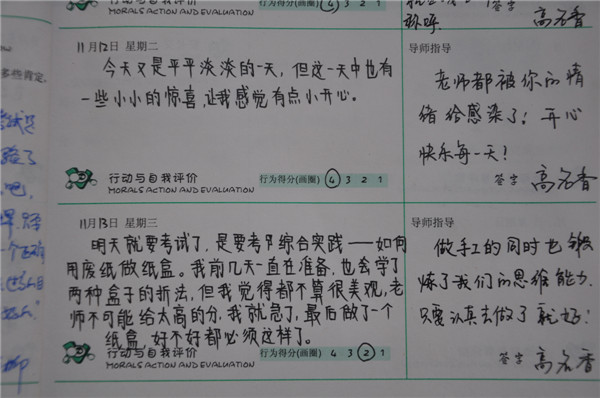 行动与自我评价 行为得分(画圈) 4 3 2 1
MORALS ACTION AND EVALUATION
称呼.
签字 高名香
11月12日 星期二
今天又是平平淡淡的一天，但这一天中也有
一些小小的惊喜，让我感觉有点小开心。
行动与自我评价 行为得分(画圈) 4 3 2 1
MORALS ACTION AND EVALUATION
导师指导
老师都被你的情
绪给感染了！开心
快乐每一天！
签字 高名香
11月13日 星期三
明天就要考试了，是要考综合实践——如何
用废纸做纸盒。我前几天一直在准备，也会学了
两种盒子的折法，但我觉得都不算很美观，老
师不可能给太高的分，我就急了，最后做了一个
纸盒，好不好都必须这样了。
行动与自我评价 行为得分(画圈) 4 3 2 1
MORALS ACTION AND EVALUATION
导师指导
做手工的同时也锻
炼了我们的思维能力.
只要认真去做了就好！
签字 高名香